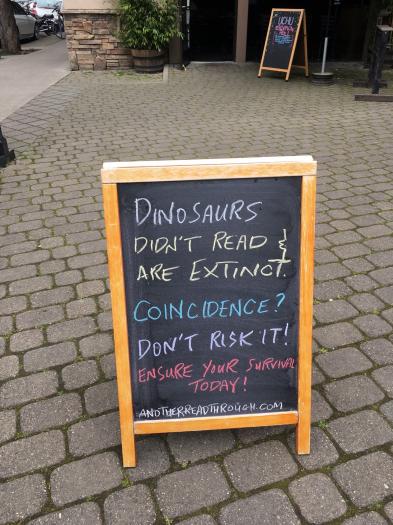 UCHU
DINOSAURS
DIDN'T READ &
ARE EXTINCT.
COINCIDENCE?
DON'T RISK IT!
ENSURE YOUR SURVIVAL
TODAY!
ANOTHERREADTHROUGH.COM